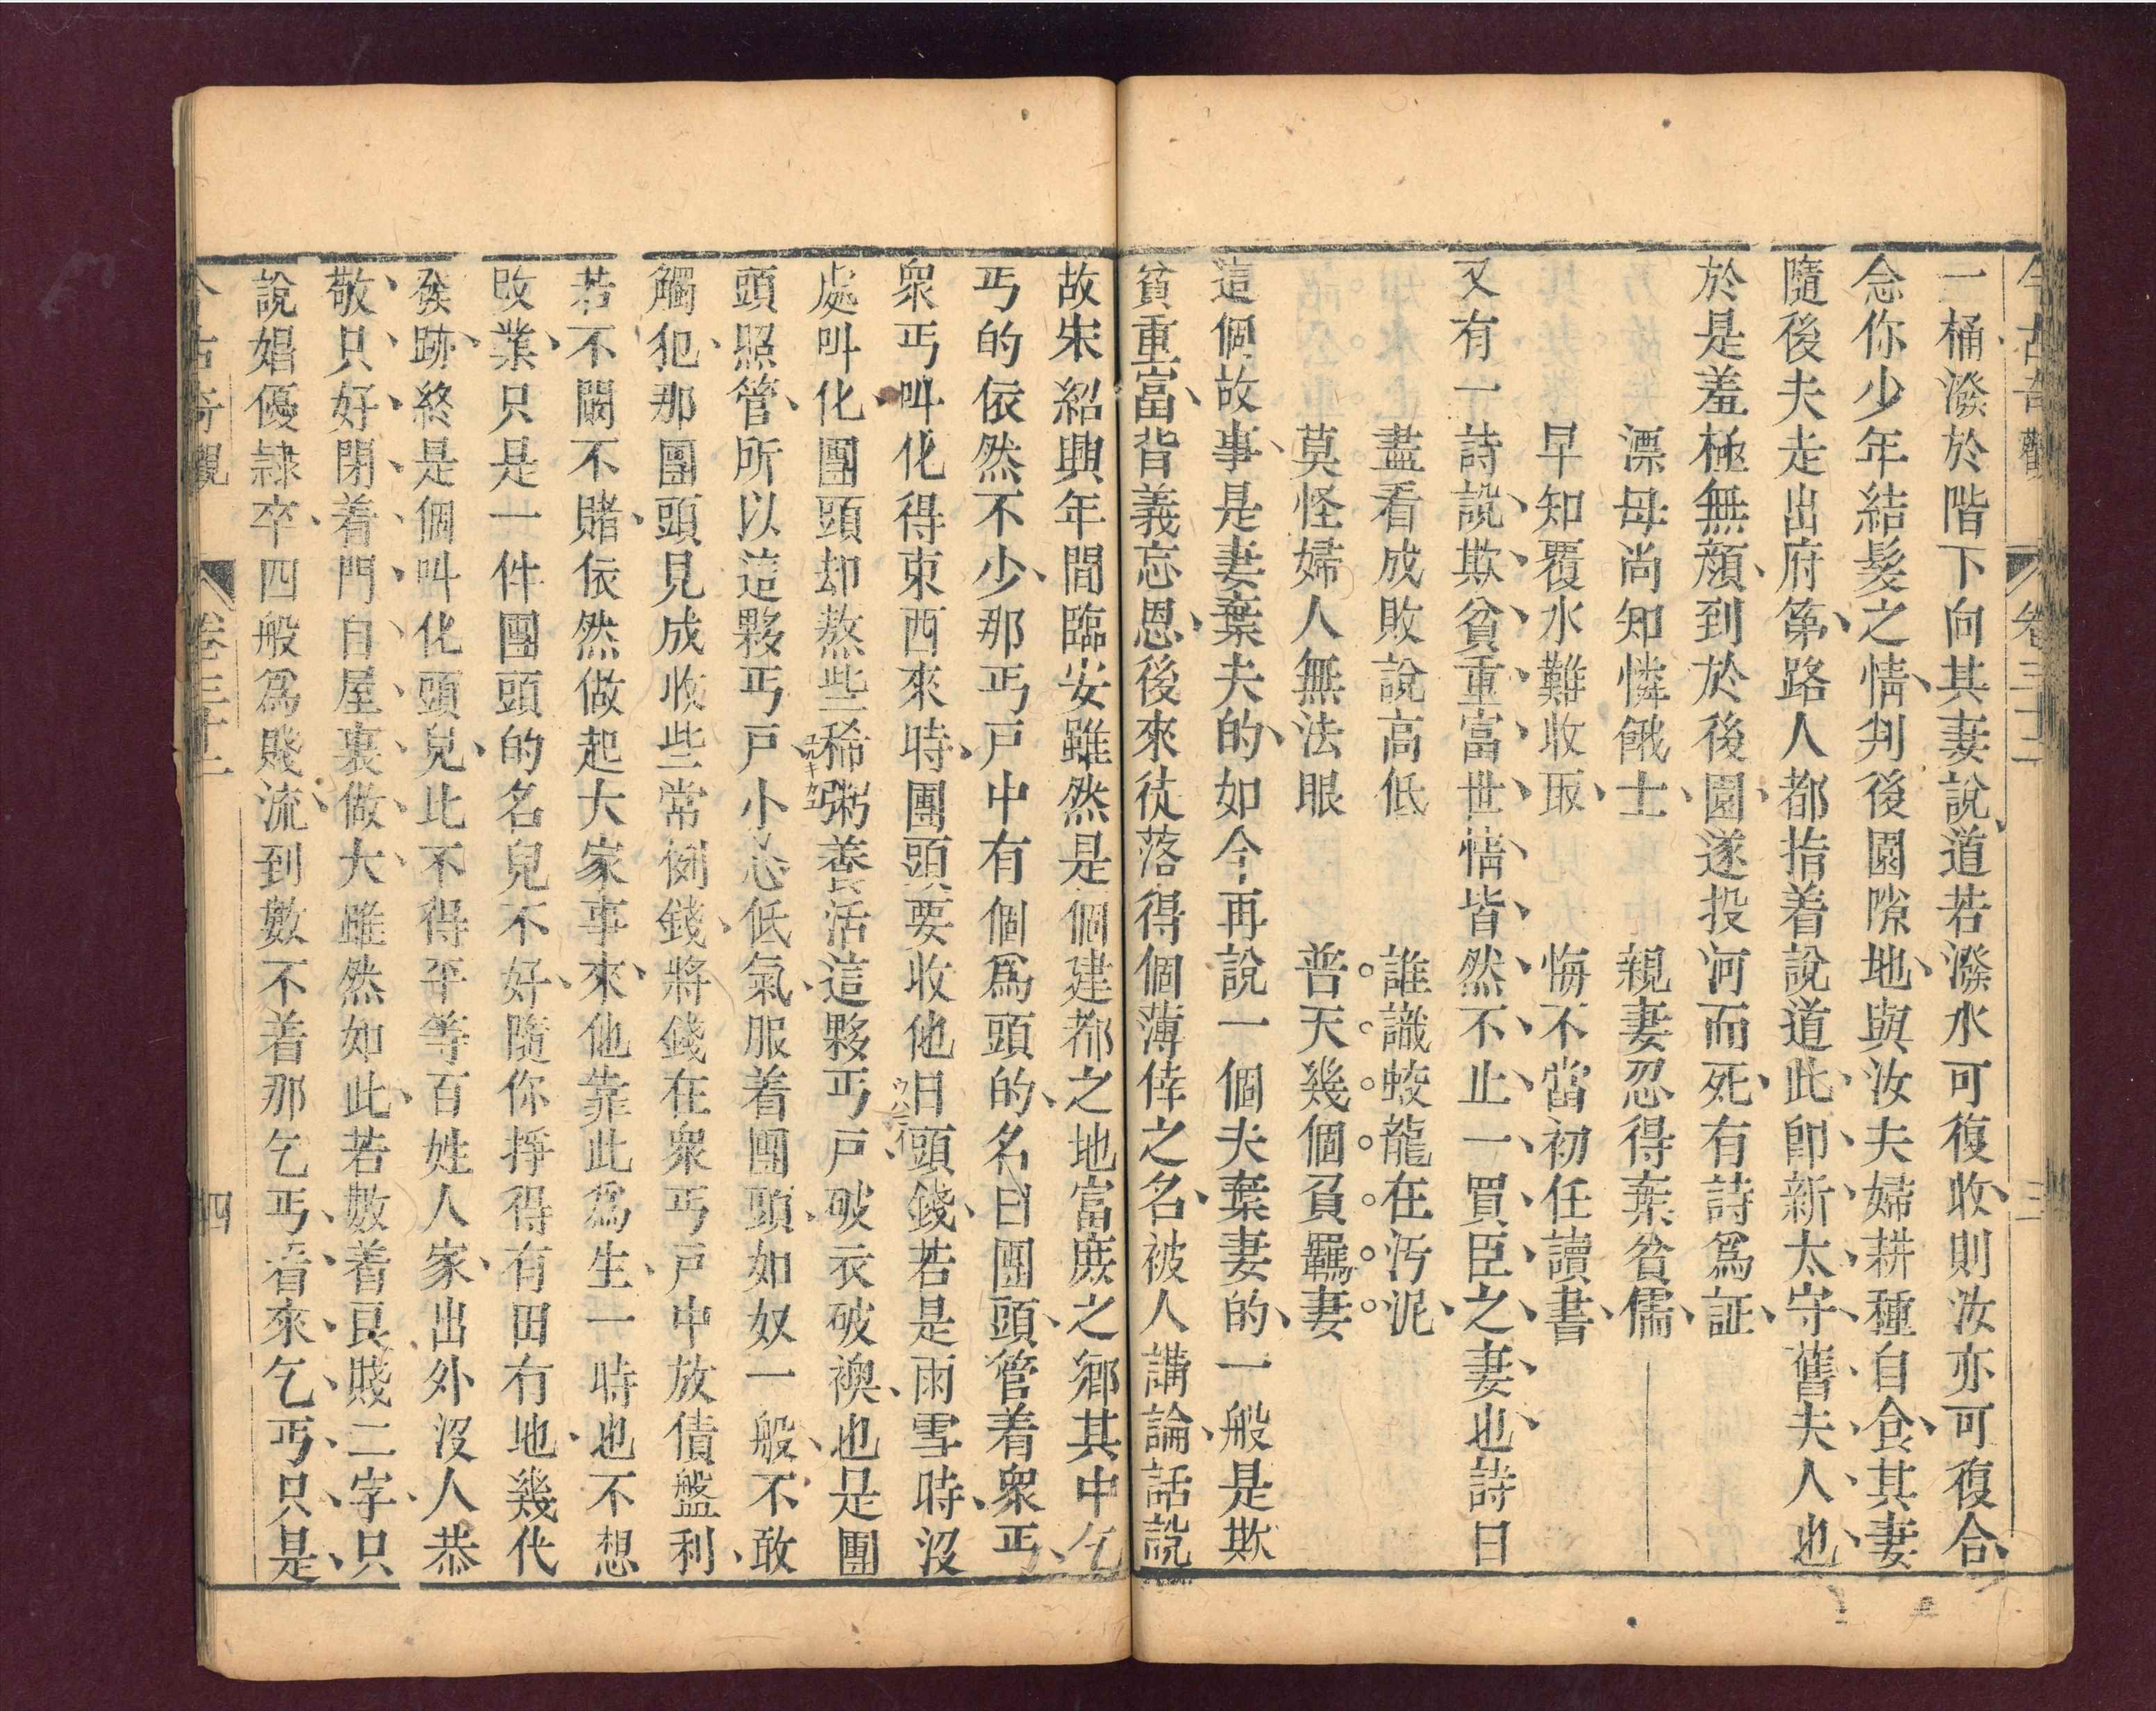 今古奇觀 卷三十二 三
一桶潑於階下向其妻說道若潑水可復收則汝亦可復合
念你少年結髮之情判後園隙地與汝夫婦耕種自食其妻
隨後夫走出府第路人都指着說道此卽新太守舊夫人也
於是羞極無顔到於後園遂投河而死有詩爲証
漂母尚知憐餓士 親妻忍得棄貧儒
早知覆水難收取 悔不當初任讀書
又有一詩說欺貧重富世情皆然不止一買臣之妻也詩曰
盡看成敗說高低 誰識蛟龍在汚泥
莫怪婦人無法眼 普天幾個負羈妻
這個故事是妻棄夫的如今再說一個夫棄妻的一般是欺
貧重富背義忘恩後來徒落得個薄倖之名被人講論話說
故宋紹興年間臨安雖然是個建都之地富庶之鄉其中乞
丐的依然不少那丐戶中有個爲頭的名曰團頭管着衆丐
衆丐叫化得東西來時團頭要收他日頭錢若是雨雪時沒
處叫化團頭却熬些稀粥養活這夥丐戶破衣破襖也是團
頭照管所以這夥丐戶小心低氣服着團頭如奴一般不敢
觸犯那團頭見成收些常例錢將錢在衆丐戶中放債盤利
若不闝不賭依然做起大家事來他靠此爲生一時也不想
改業只是一件團頭的名兒不好隨你掙得有田有地幾代
發跡終是個叫化頭兒比不得平等百姓人家出外沒人恭
敬只好閉着門自屋裏做大雖然如此若數着良賤二字只
說娼優隸卒四般爲賤流到數不着那乞丐看來乞丐只是
今古奇觀 卷三十二 四